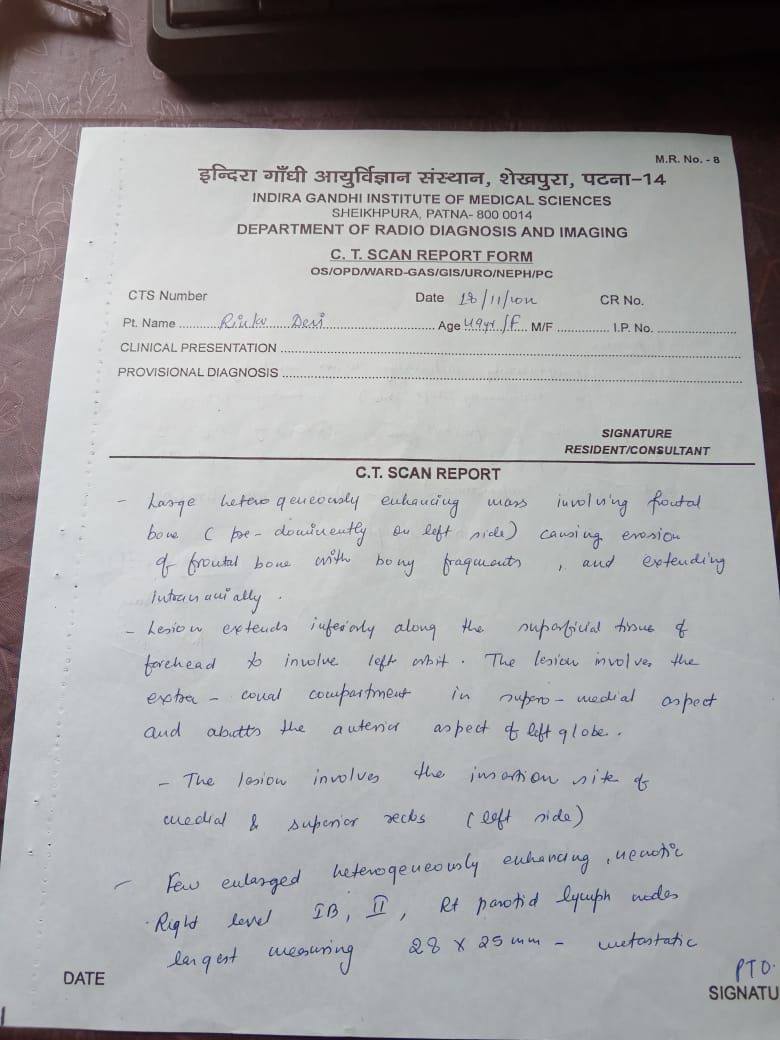 M.R. No. - 8
इन्दिरा गाँधी आयुर्विज्ञान संस्थान, शेखपुरा, पटना-14
INDIRA GANDHI INSTITUTE OF MEDICAL SCIENCES
SHEIKHPURA, PATNA- 800 0014
DEPARTMENT OF RADIO DIAGNOSIS AND IMAGING
C. T. SCAN REPORT FORM
OS/OPD/WARD-GAS/GIS/URO/NEPH/PC
CTS Number Date 18/11/ CR No.
Pt. Name Devi Age 49yr /F M/F I.P. No.
CLINICAL PRESENTATION
PROVISIONAL DIAGNOSIS
SIGNATURE
RESIDENT/CONSULTANT
C.T. SCAN REPORT
- Large heterogeneously enhancing mass involving frontal
bone (pre-dominently on left side) causing erosion
of frontal bone with bony fragments, and extending
Intracranially.
- Lesion extends inferiorly along the superficial tissue of
forehead to involve left orbit. The lesion involves the
extra-conal compartment in supero-medial aspect
and abutts the anterior aspect of left globe.
- The lesion involves the insertion site of
medial & superior (left side)
- Few enlarged heterogeneously enhancing, necrotic
Right level IB, II, Rt parotid lymph nodes
largest measuring 28 x 25 mm - metastatic
PTO.
DATE
SIGNATU